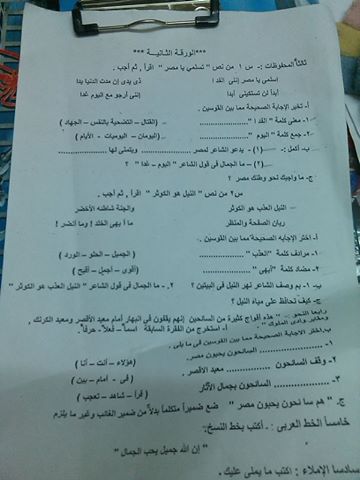 *** الورقة الثانية ***
ثالثاً المحفوظات :- س ١ من نص " تسلمي يا مصر " اقرأ , ثم أجب .
اسلمى يا مصر إننى الفدا ذى يدى إن مدت الدنيا يدا
أبدا لن تستكينى أبدا إننى أرجو مع اليوم غدا
أ- تخير الإجابة الصحيحة مما بين القوسين .
١- معنى كلمة " الفدا " .................... (القتال – التضحية بالنفس – الجهاد )
٢- جمع كلمة " اليوم " .................... (اليومان – اليوميات – الأيام )
ب- أكمل :- (١) - يدعو الشاعر لمصر .................... ويتمنى لها ....................
(٢) – ما الجمال فى قول الشاعر " اليوم – غدا " ؟
ج- ما واجبك نحو وطنك مصر ؟
س٢ من نص " النيل هو الكوثر " اقرأ , ثم أجب .
النيل العذب هو الكوثر والجنة شاطئه الأخضر
ريان الصفحة والمنظر ما أبهى الخلد ! وما أنضر !
أ- اختر الإجابة الصحيحة مما بين القوسين .
١- مرادف كلمة "العذب" .................... (الجميل – الحلو – الورد )
٢- مضاد كلمة "أبهى" .................... (أقوى – أجمل – أقبح )
ب- ١- بم وصف الشاعر نهر النيل فى البيتين ؟ ٢ – ما الجمال فى قول الشاعر " النيل العذب هو الكوثر "
ج- كيف تحافظ على مياه النيل ؟
رابعا النحو :- " هذه أفواج كثيرة من السائحين إنهم يقفون فى انبهار أمام معبد الأقصر ومعبد الكرنك ,
ومقابر وادى الملوك " . أ- استخرج من الفقرة السابقة اسماً – فعلاً – حرفاً.
ب- اختر الإجابة الصحيحة مما بين القوسين فى ما يلى .
١- .................... السائحون يحبون مصر. (هؤلاء – أنت – أنا )
٢- وقف السائحون .................... معبد الأقصر . ( فى – أمام – بين )
٣- .................... السائحون بجمال الآثار ( قرأ – شاهد – تعجب )
ج. " هم سائحون يحبون مصر " ضع ضميراً متكلماً بدلاً من ضمير الغائب وغير ما يلزم
خامساً الخط العربى : . أكتب بخط النسخ:
" إن الله جميل يحب الجمال "
سادسا الإملاء : اكتب ما يملى عليك .